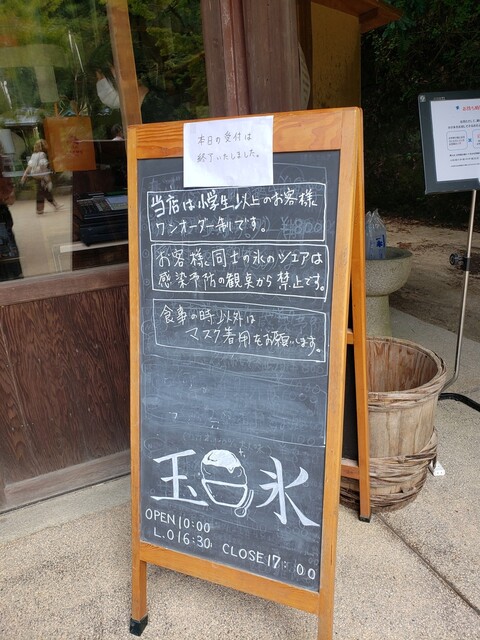 本日の受付は
終了いたしました。
当店は小学生以上のお客様
ワンオーダー制です。
お客様同士の氷のシェアは
感染予防の観点から禁止です。
食事の時以外は
マスク着用をお願いします。
玉氷
OPEN10:00
L.O16:30 CLOSE17:00